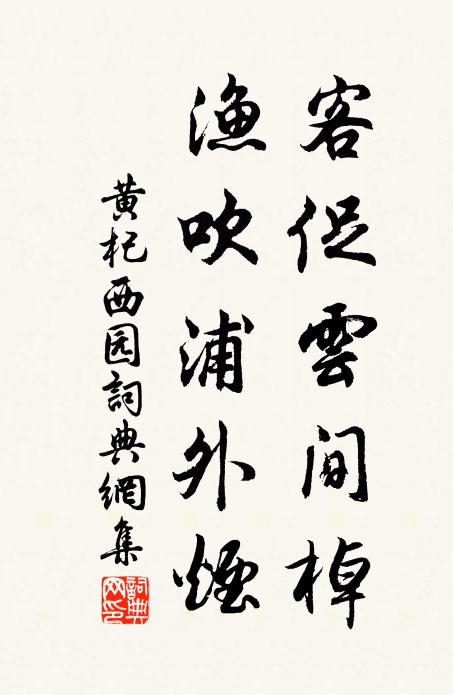 客促雲間棹
漁吹浦外煙
黄杞西园詞典網集
詞典網印